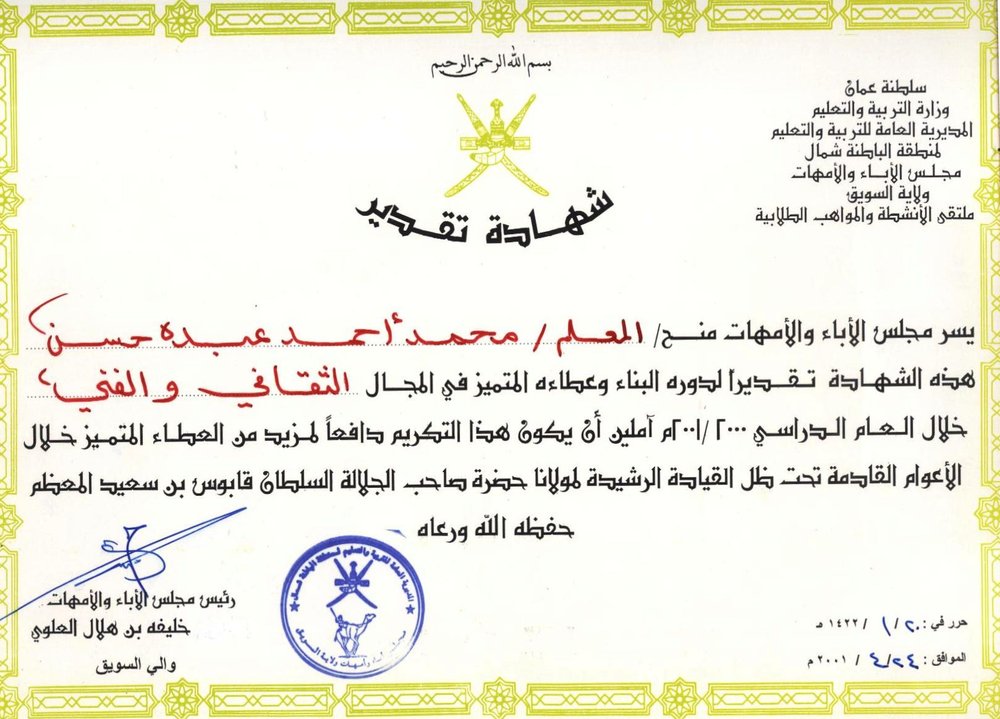 بسم الله الرحمن الرحيم
سلطنة عمان
وزارة التربية والتعليم
المديرية العامة للتربية والتعليم
لمنطقة الباطنة شمال
مجلس الأباء والأمهات
ولاية السويق
ملتقى الأنشطة والمواهب الطلابية
شهادة تقدير
يسر مجلس الأباء والأمهات منح/ المعلم / محمد أحمد عبده حسن
هذه الشهادة تقديراً لدوره البناء وعطاءه المتميز في المجال الثقافي والفني
خلال العام الدراسي ٢٠٠٠ /٢٠٠١م آملين أن يكون هذا التكريم دافعاً لمزيد من العطاء المتميز خلال
الأعوام القادمة تحت ظل القيادة الرشيدة لمولانا حضرة صاحب الجلالة السلطان قابوس بن سعيد المعظم
حفظه الله ورعاه
رئيس مجلس الأباء والأمهات
خليفه بن هلال العلوي
والي السويق
المديرية العامة للتربية والتعليم لمنطقة الباطنة شمال
مجلس أباء وأمهات ولاية السويق
حرر في : ٢٠ / ١ / ١٤٢٢ هـ
الموافق : ٢٤ / ٤ / ٢٠٠١ م